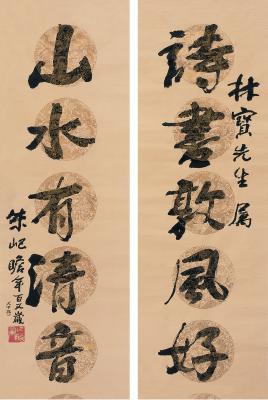 林寶先生属
詩書敦風好
山水有清音
朱屺瞻年百又歲